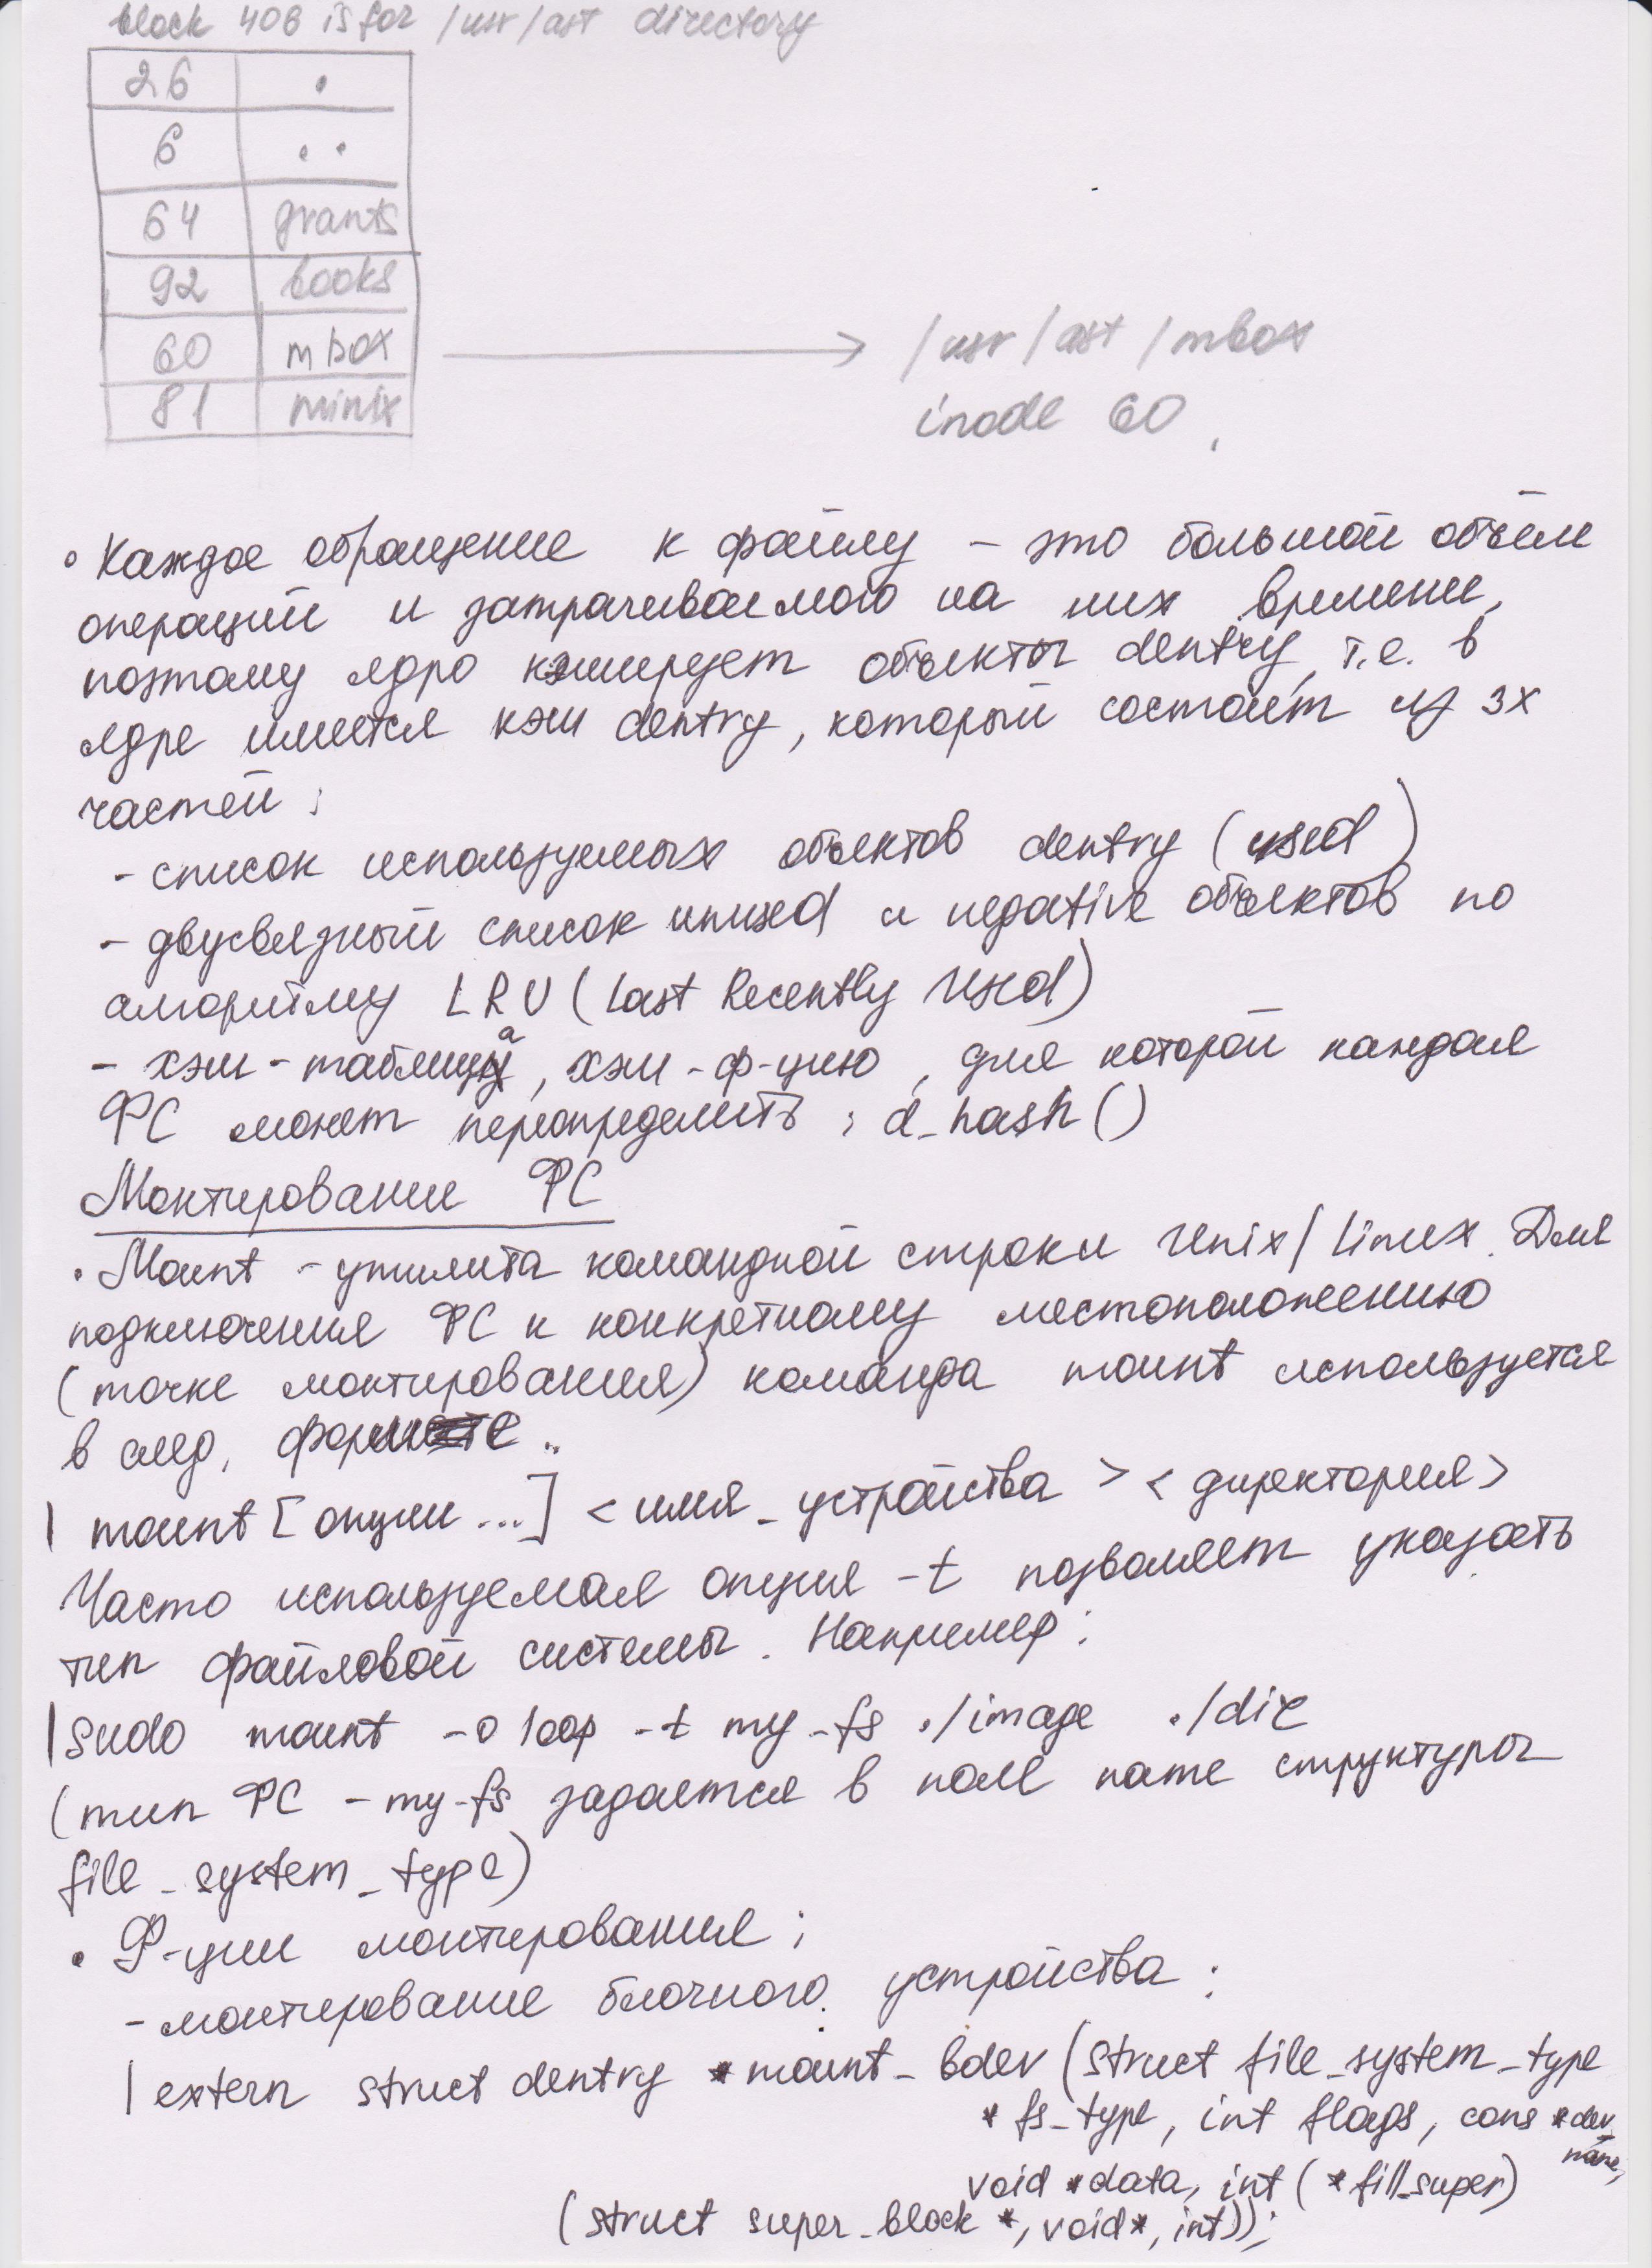 block 406 is for /usr/ast directory
26 .
6 ..
64 grants
92 books
60 mbox
81 minix
/usr/ast/mbox
inode 60
• Каждое обращение к файлу - это большой объём
операций и затрачиваемого на них времени,
поэтому ядро кэширует объекты dentry, т.е. в
ядре имеется кэш dentry, который состоит из 3х
частей:
- список используемых объектов dentry (used)
- двусвязный список unused и negative объектов по
алгоритму LRU (Last Recently Used)
- хэш-таблица, хэш-ф-цию, для которой каждая
ФС может переопределить: d_hash()
Монтирование ФС
• Mount - утилита командной строки Unix/Linux. Для
подключения ФС к конкретному местоположению
(точке монтирования) команда mount используется
в след. формате:
| mount [опции ...] <имя_устройства> <директория>
Часто используемая опция -t позволяет указать
тип файловой системы. Например:
| sudo mount -o loop -t my_fs ./image ./dir
(тип ФС - my_fs задается в поле name структуры
file_system_type)
• Ф-ции монтирования:
- монтирование блочного устройства:
| extern struct dentry *mount_bdev (struct file_system_type
* fs_type, int flags, cons *dev_
name,
void *data, int (*fill_super)
(struct super_block *, void*, int));